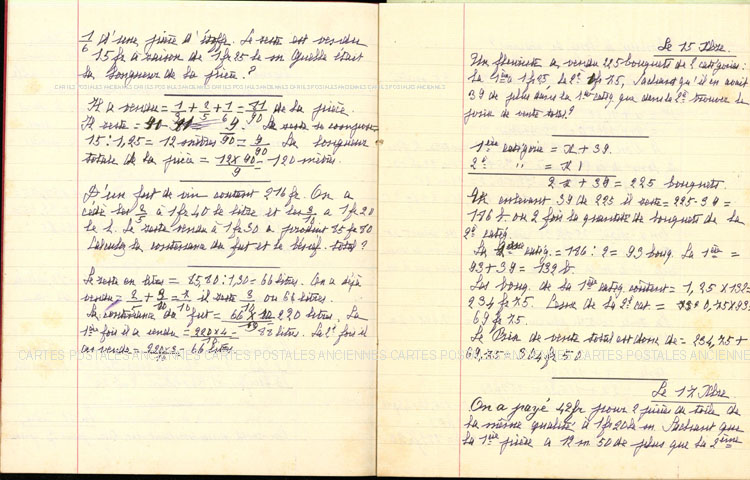 1/6 d'une pièce d'étoffe. Le reste est vendu
15 fr à raison de 1 fr 25 le m Quelle était
la longueur de la pièce.?
CARTES POSTALES ANCIENNES CARTES POSTALES ANCIENNES
Il a vendu = 1/9 + 2/5 + 1/6 = 71/90 de la pièce.
Il reste = 9/90. Le reste se compose
15 : 1,25 = 12 mètres 90 = 9/90 La longueur
totale de la pièce = 12 x 90/9 = 120 mètres.
D'un fut de vin contenant 216 fr. On a
cédé les 2/5 à 1 fr 40 le litre et les 3/10 à 1 fr 20
le l. Le reste vendu à 1 fr 30 a produit 85 fr 80
Calculez la contenance du fut et le bénéf. total?
Le reste en litres = 85,80 : 1,30 = 66 litres. On a déjà
vendu = 2/5 + 3/10 = 7/10 il reste 3/10 ou 66 litres.
La contenance du fut = 66 x 10 = 220 litres. La
1ère fois il a vendu = 220 x 4/10 = 88 litres. La 2e fois il
en vendu = 220 x 3/10 = 66 litres
CARTES POSTALES ANCIENNES CARTES POSTALES ANCIENNES CARTES POSTALES ANCIENNES CARTES POSTALES
Le 15 Xbre.
Un fleuriste a vendu 225 bouquets de 2 catégories:
la 1ère à 1 fr 75, la 2e 0 fr 75, Sachant qu'il y en avait
39 de plus dans la 1ère catég que dans la 2e trouver le
prix de vente total?
1ère catégorie = x + 39.
2e " = x 1
2 x + 39 = 225 bouquets.
En enlevant 39 de 225 il reste = 225 - 39 =
186 b ou 2 fois la quantité de bouquets de la
2e catég.
La 2ème catég. = 186 : 2 = 93 bouq. La 1ère =
93 + 39 = 132 b.
Les bouq. de la 1ère catég. coûtent = 1,75 x 132 =
234 fr 75. Ceux de la 2e cat. = 0,75 x 93 =
69 fr 75.
Le Prix de vente total est donc de = 234,75 +
69,75 = 304 fr 50
Le 17 Xbre
On a payé 42 fr pour 2 pièces de toile de
la même qualité à 1 fr 20 le m Sachant que
la 1ère pièce a 12 m 50 de plus que la 2ème